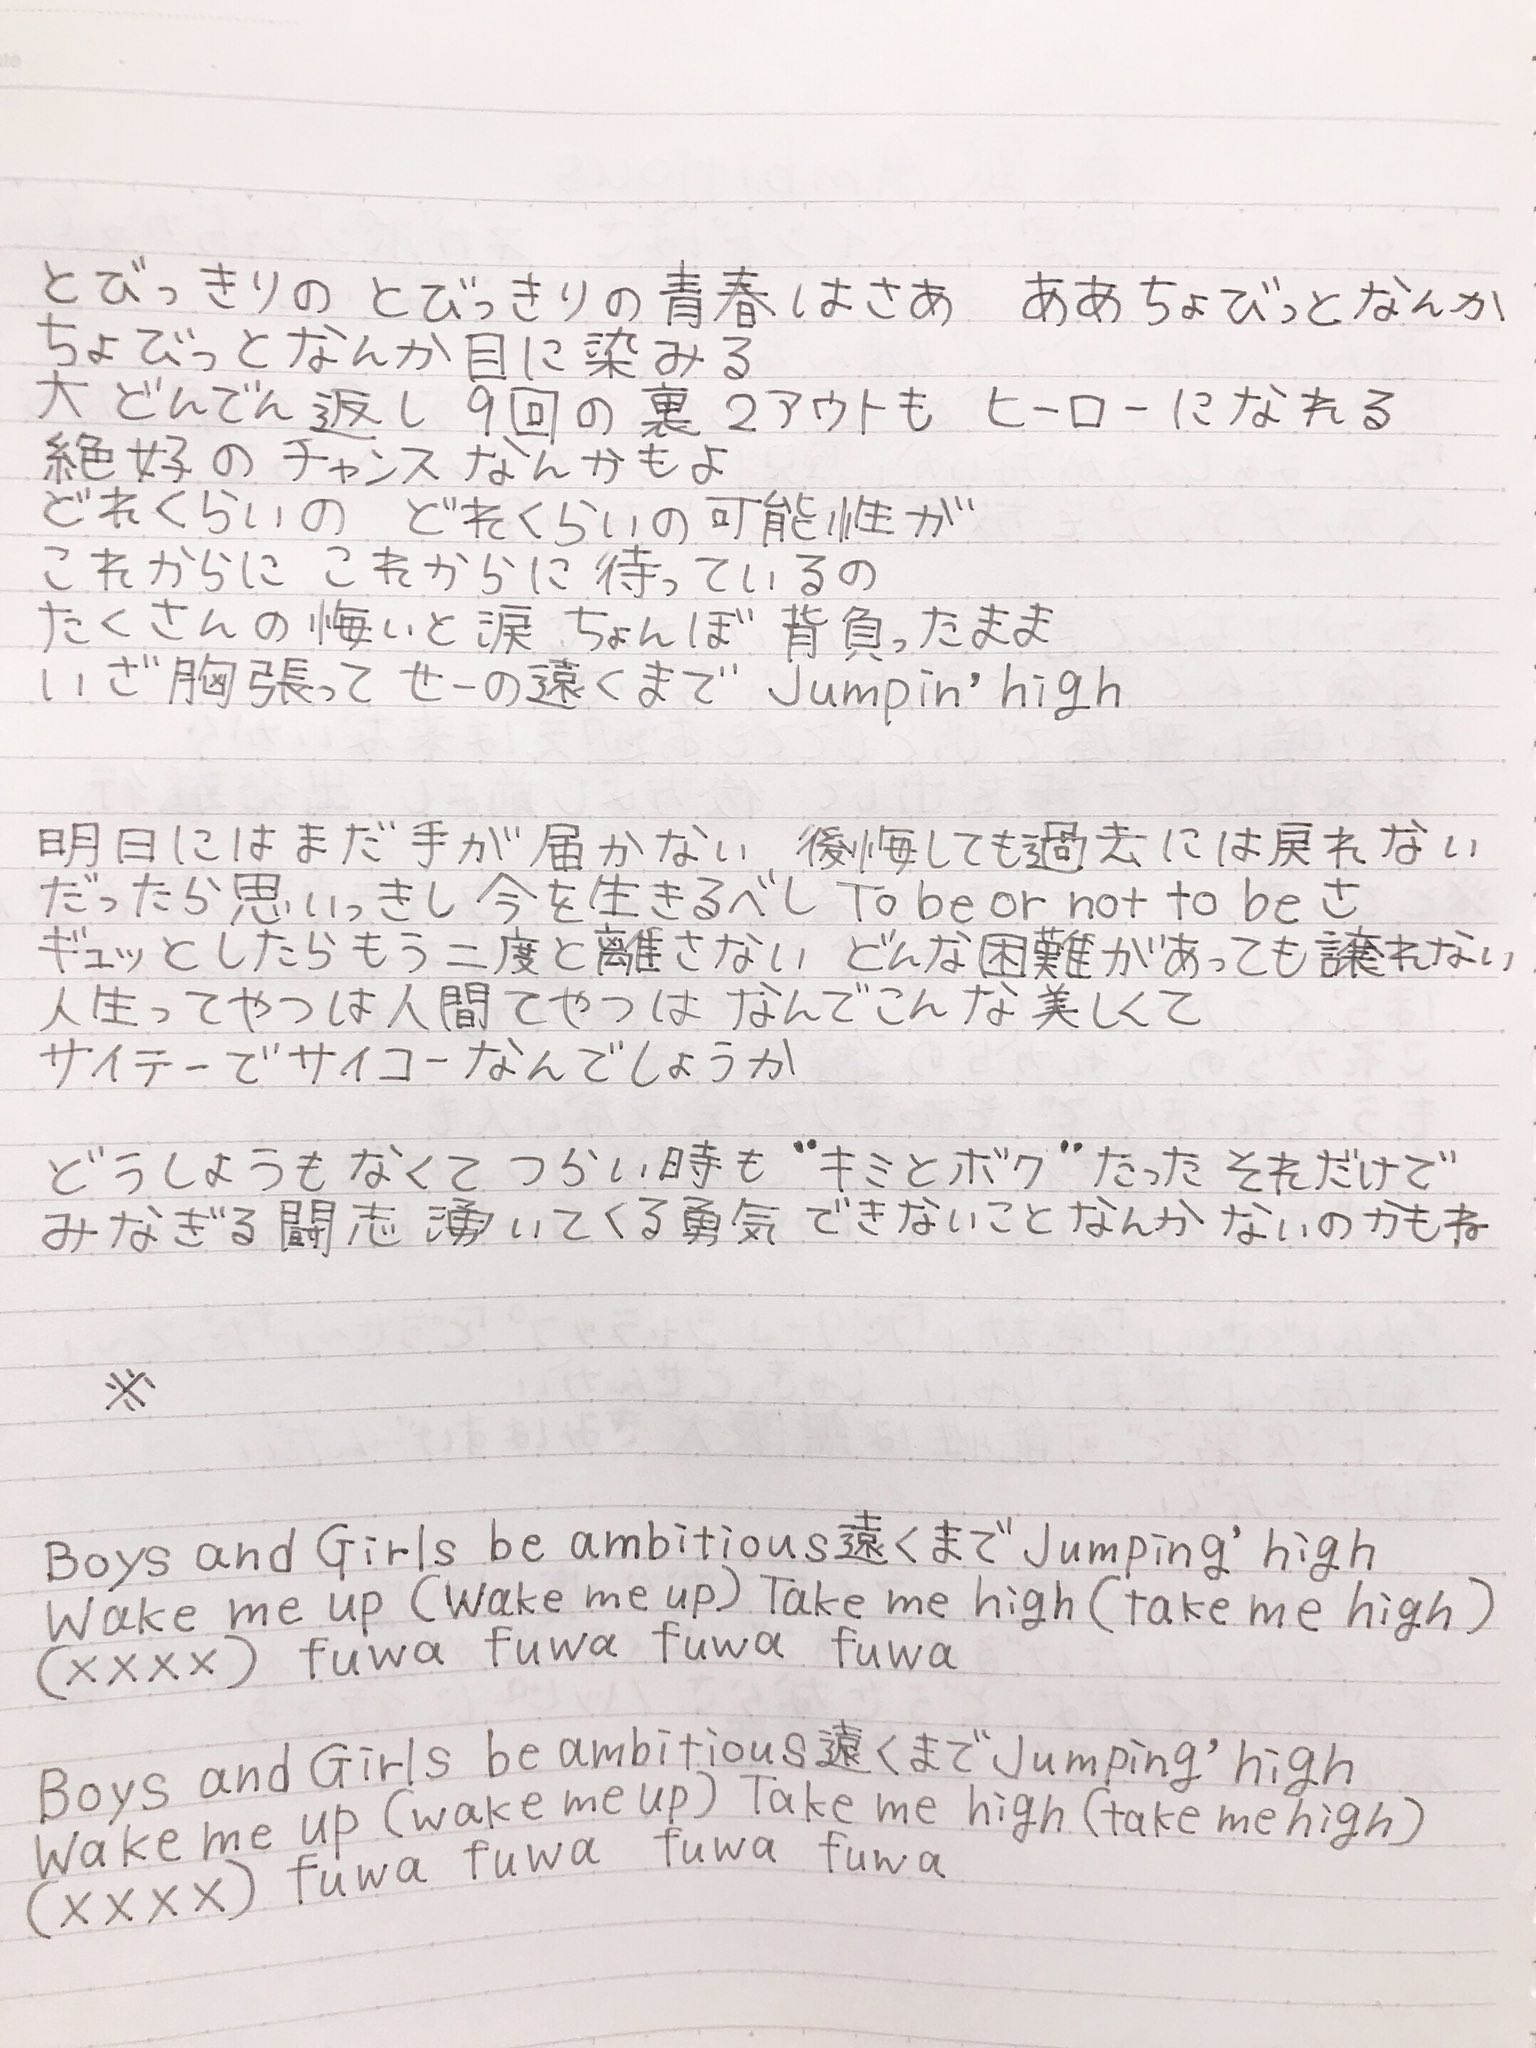 とびっきりの とびっきりの青春はさあ　ああちょびっとなんか
ちょびっとなんか目に染みる
大 どんでん返し 9回の裏 2アウトも ヒーローになれる
絶好の チャンスなんかもよ
どれくらいの　どれくらいの可能性が
これからに これからに待っているの
たくさんの悔いと涙 ちょんぼ 背負ったまま
いざ胸張って せーの遠くまで Jumpin' high
明日にはまだ手が届かない　後悔しても過去には戻れない
だったら思いっきし今を生きるべし To be or not to be さ
ギュッとしたらもう二度と離さない どんな困難があっても譲れない
人生ってやつは人間てやつは なんでこんな美しくて
サイテーでサイコーなんでしょうか
どうしようもなくてつらい時も "キミとボク" たった それだけで
みなぎる闘志 湧いてくる勇気 できないことなんかないのかもね
※
Boys and Girls be ambitious遠くまでJumping' high
Wake me up (Wake me up) Take me high (take me high)
(××××) fuwa fuwa fuwa fuwa
Boys and Girls be ambitious遠くまでJumping' high
Wake me up (wake me up) Take me high (take me high)
(××××) fuwa fuwa fuwa fuwa